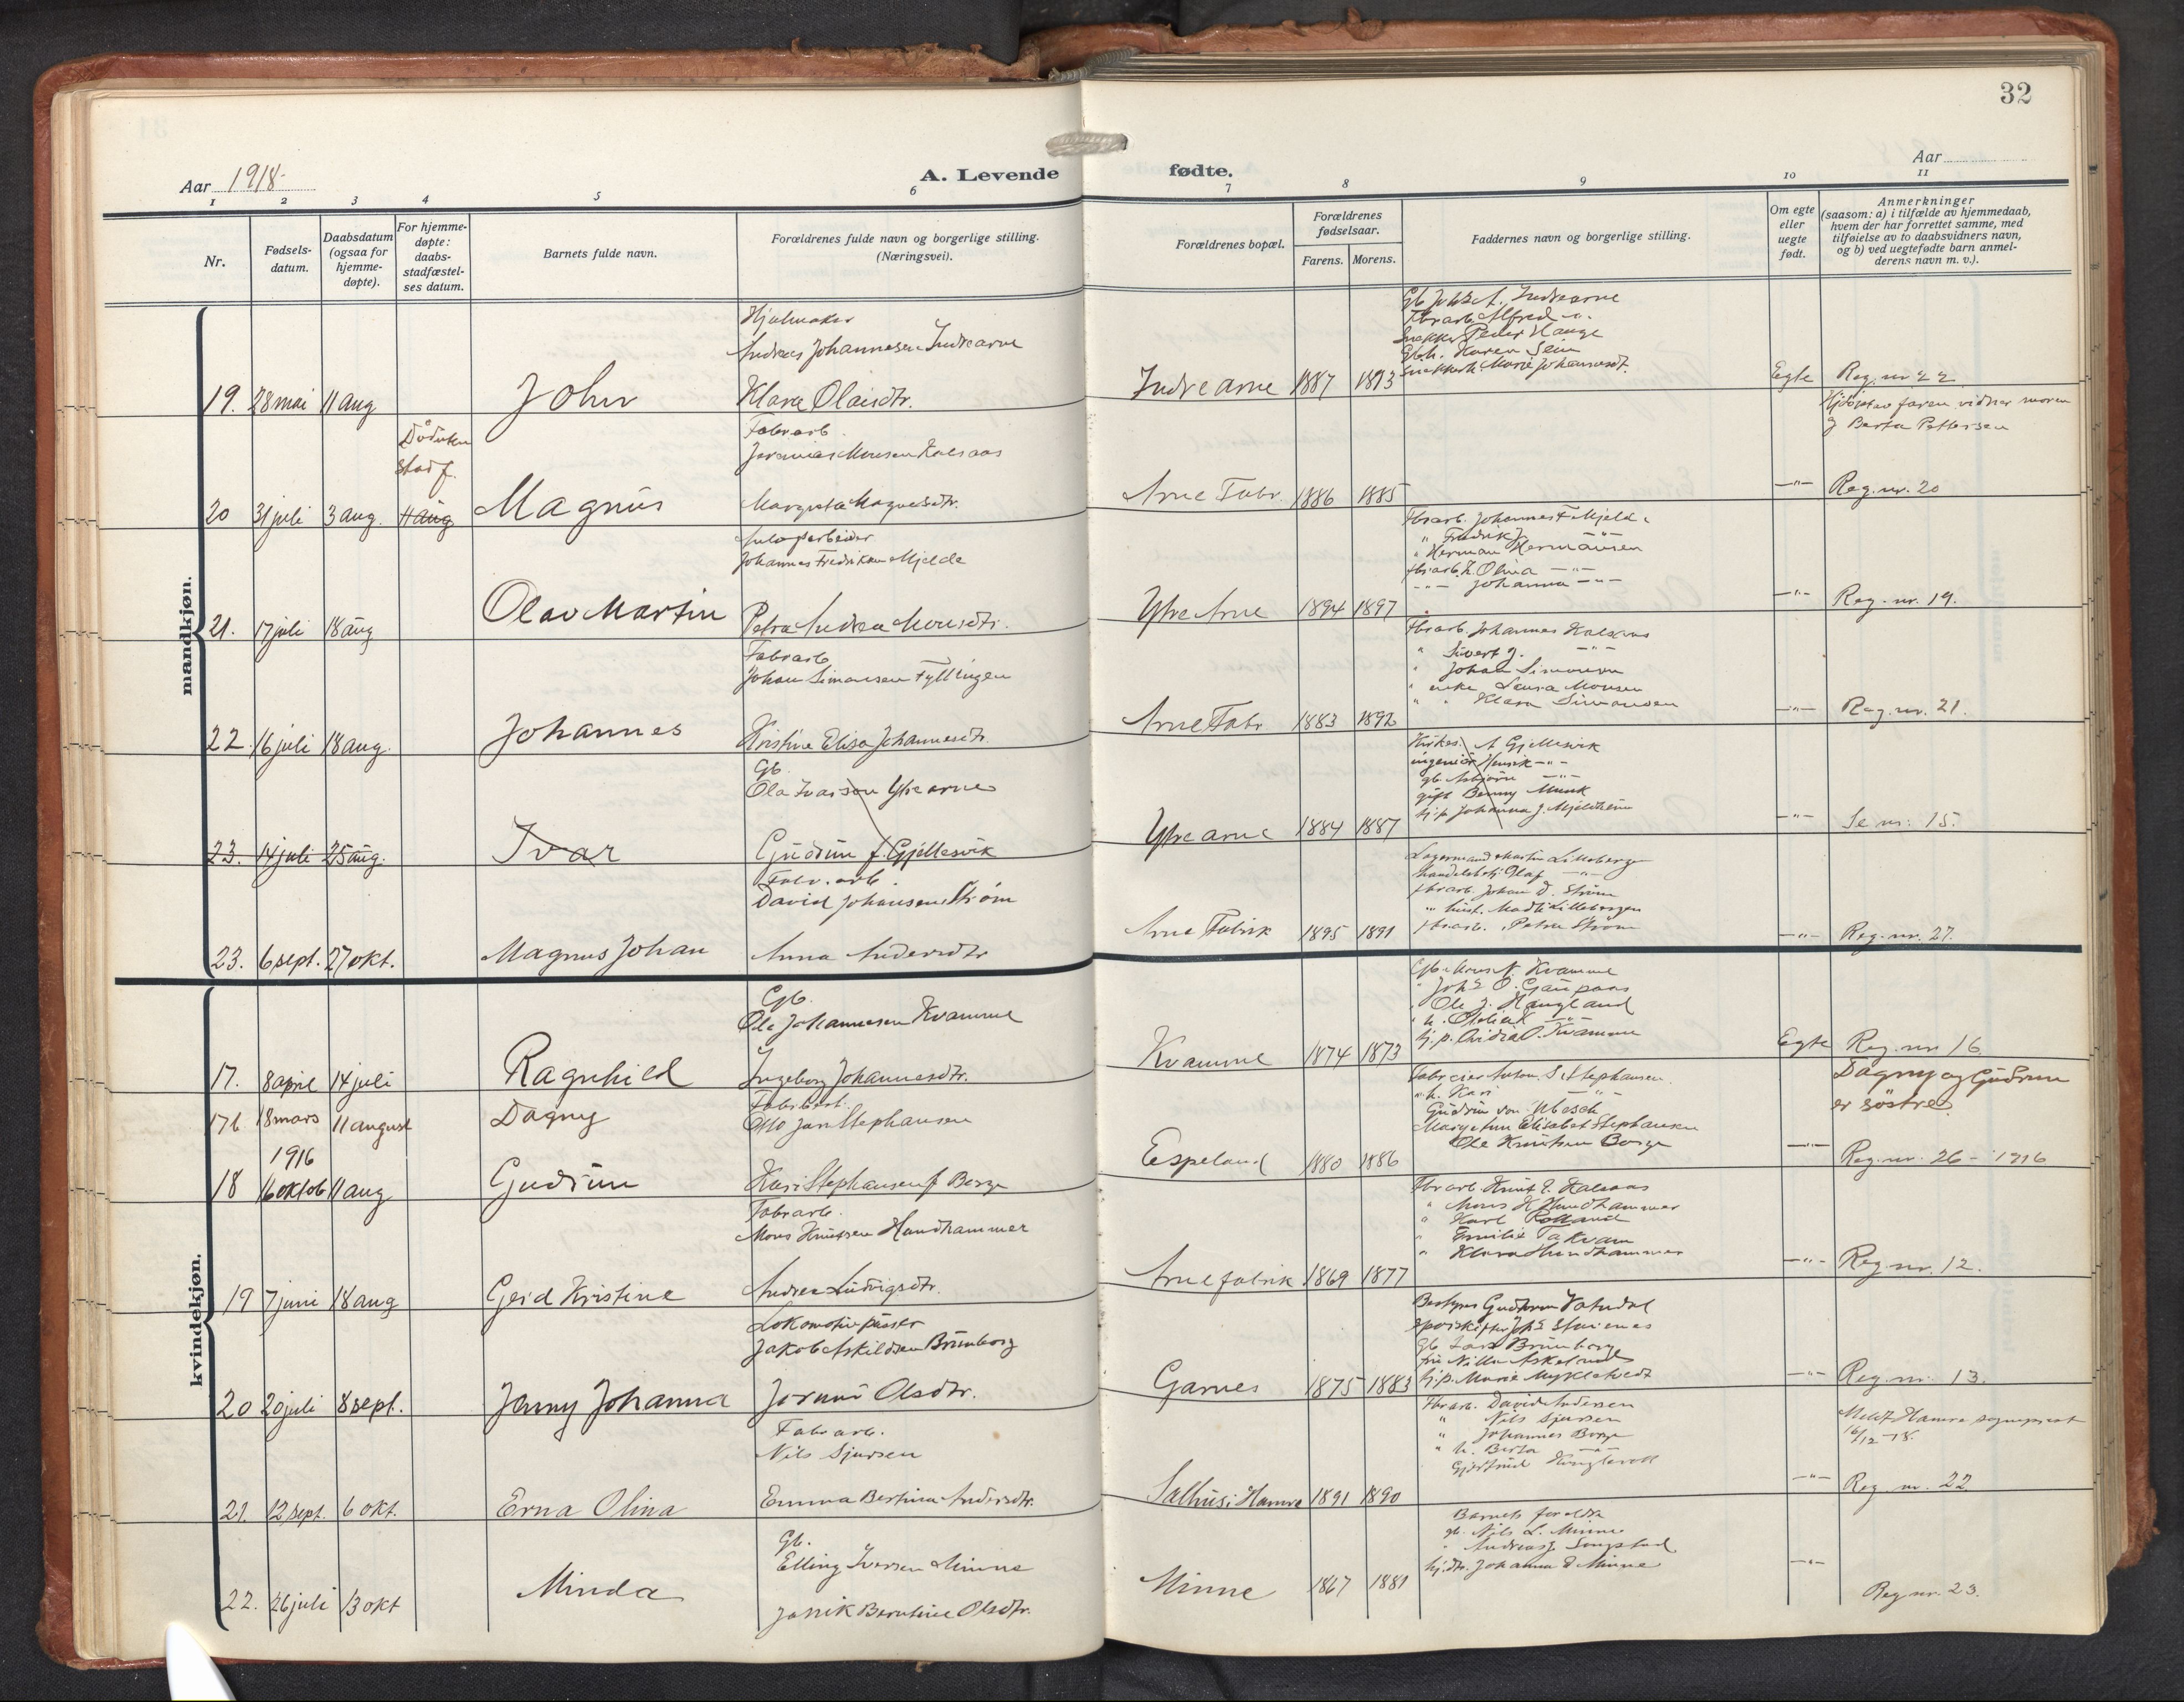 32
Aar 1918.
A. Levende
fødte.
Aar
1 2 3 4 5 6 7 8 9 10 11
Nr.
Fødsels-
datum.
Daabsdatum
(ogsaa for
hjemme-
døpte).
For hjemme-
døpte:
daabs-
stadfæstel-
ses datum.
Barnets fulde navn.
Forældrenes fulde navn og borgerlige stilling.
(Næringsvei).
Forældrenes bopæl.
Forældrenes
fødselsaar.
Farens. Morens.
Faddernes navn og borgerlige stilling.
Om egte
eller
uegte
født.
Anmerkninger
(saasom: a) i tilfælde av hjemmedaab,
hvem der har forrettet samme, med
tilføielse av to daabsvidners navn,
og b) ved uegtefødte barn anmel-
derens navn m. v.).
mandkjøn.
Andreas Johannesen Indrearne
19. 28 mai 11 aug John Klara Olaisdtr.
Indre arne 1887 1893
Alfred -"-
Peder Hauge
Marie Johannesdt.
Egte Reg. nr 22
Død uten
stadf.
20 31 juli 3 aug. 11 aug Magnus
Fabrarb.
Jeremias Monsen Kalsaas
Margreta Magnesdtr.
Arne Fabr. 1886 1885
-"-
Hjdøpt av faren vidner moren
g Berta Pettersen
Reg. nr. 20
21. 17 juli 18 aug Olav Martin
Johannes Fredriksen Mjelde
Petra Andrea Monsdtr.
Ytre Arne 1894 1897
Fbrarb. Johannes F Mjelde
" Fredrik J. -"-
" Herman Hermansen
Olina -"-
-"- Johanna -"-
-"- Reg. nr. 19.
22. 16 juli 18 aug. Johannes
Fabrarb
Johan Simonsen Fyllingen
Kristine Elisa Johannesdtr.
Arne Fabr 1883 1892
Fbrarb. Johannes Kalsaas
" Sivert J. -"-
" Johan Simonsen
" enke Laura Monsen
" " Klara Simonsen
-"- Reg. nr. 21.
23. 14 juli 25 aug. Ivar
Gb.
Ola Ivarson Ytrearne
Gudrun f. Gjellesvik
Ytre arne 1884 1887
A Gjellesvik
ingeniør Henrik -"-
gb. Asbjørn -"-
gift Benny Munk
hj.p. Johanna J. Mjeldheim
-"- Se nr. 15.
23. 6 sept. 27 okt. Magnus Johan
Fabr. arb.
David Johansen Strøm
Anna Andersdtr
Arne Fabrik 1895 1891
Lagermand Martin Lilleberger
Olaf -"-
fbrarb. Johan D. Strøm
fbrarb. Petra Strøm
-"- Reg. nr. 27.
kvindekjøn.
17. 8 april 14 juli Ragnhild
Gb.
Ole Johannesen Kvamme
Ingeborg Johannesdtr.
Kvamme 1874 1873
Kvamme
Ole J. Haugland
Egte Reg. nr 16
17b 18 mars 11 august Dagny
1916
18 16 oktob 11 aug Gudrun
Otto Jan Stephansen
Kari Stephansen f Borge
Espeland 1880 1886
Anton S Stephansen.
" h. Kari -"-
Elisabet Stephansen
Ole Knutsen Borge
-"-
Dagny og Gudrun
er søstre
Reg. nr. 26 - 1916
19 7 juni 18 aug Gerd Kristine
Fabrarb.
Mons Knutsen Hundhammer
Andrea Ludvigsdtr.
Arne fabrik 1869 1877
Fbrarb. Knut E. Kalsaas
" Mons K Hundhammer
" Karl
" Emilie Takvam
" Klara Hundhammer
-"- Reg nr. 12.
20 20 juli 8 sept. Jenny Johanna
Lokomotivpusser
Jakob Askildsen Brunborg
Jorunn Olsdtr.
Garnes 1875 1883
gb Lars Brunborg
hj.p. Marie Mykletvedt
-"- Reg. nr. 13.
21. 12 sept. 6 okt. Erna Olina
Fabrarb.
Nils Sjursen
Emma Bertina Andersdtr.
Salhus i Hamre 1891 1890
Fbrarb. David Andersen
" Nils Sjursen
" Johannes Borge
" h. Berta -"-
Gjertrud
-"-
Meldt Hamre sogneprest
16/12 - 18.
Reg. nr. 22
22. 26 juli 13 okt Minda
Gb.
Elling Iversen Minne
Jannik Berntine Olsdtr.
Minne 1867 1881
Barnets foreldre
gb. Nils L. Minne
" Andreas J
hj.dtr. Johanna E Minne
-"-
Reg nr. 23.